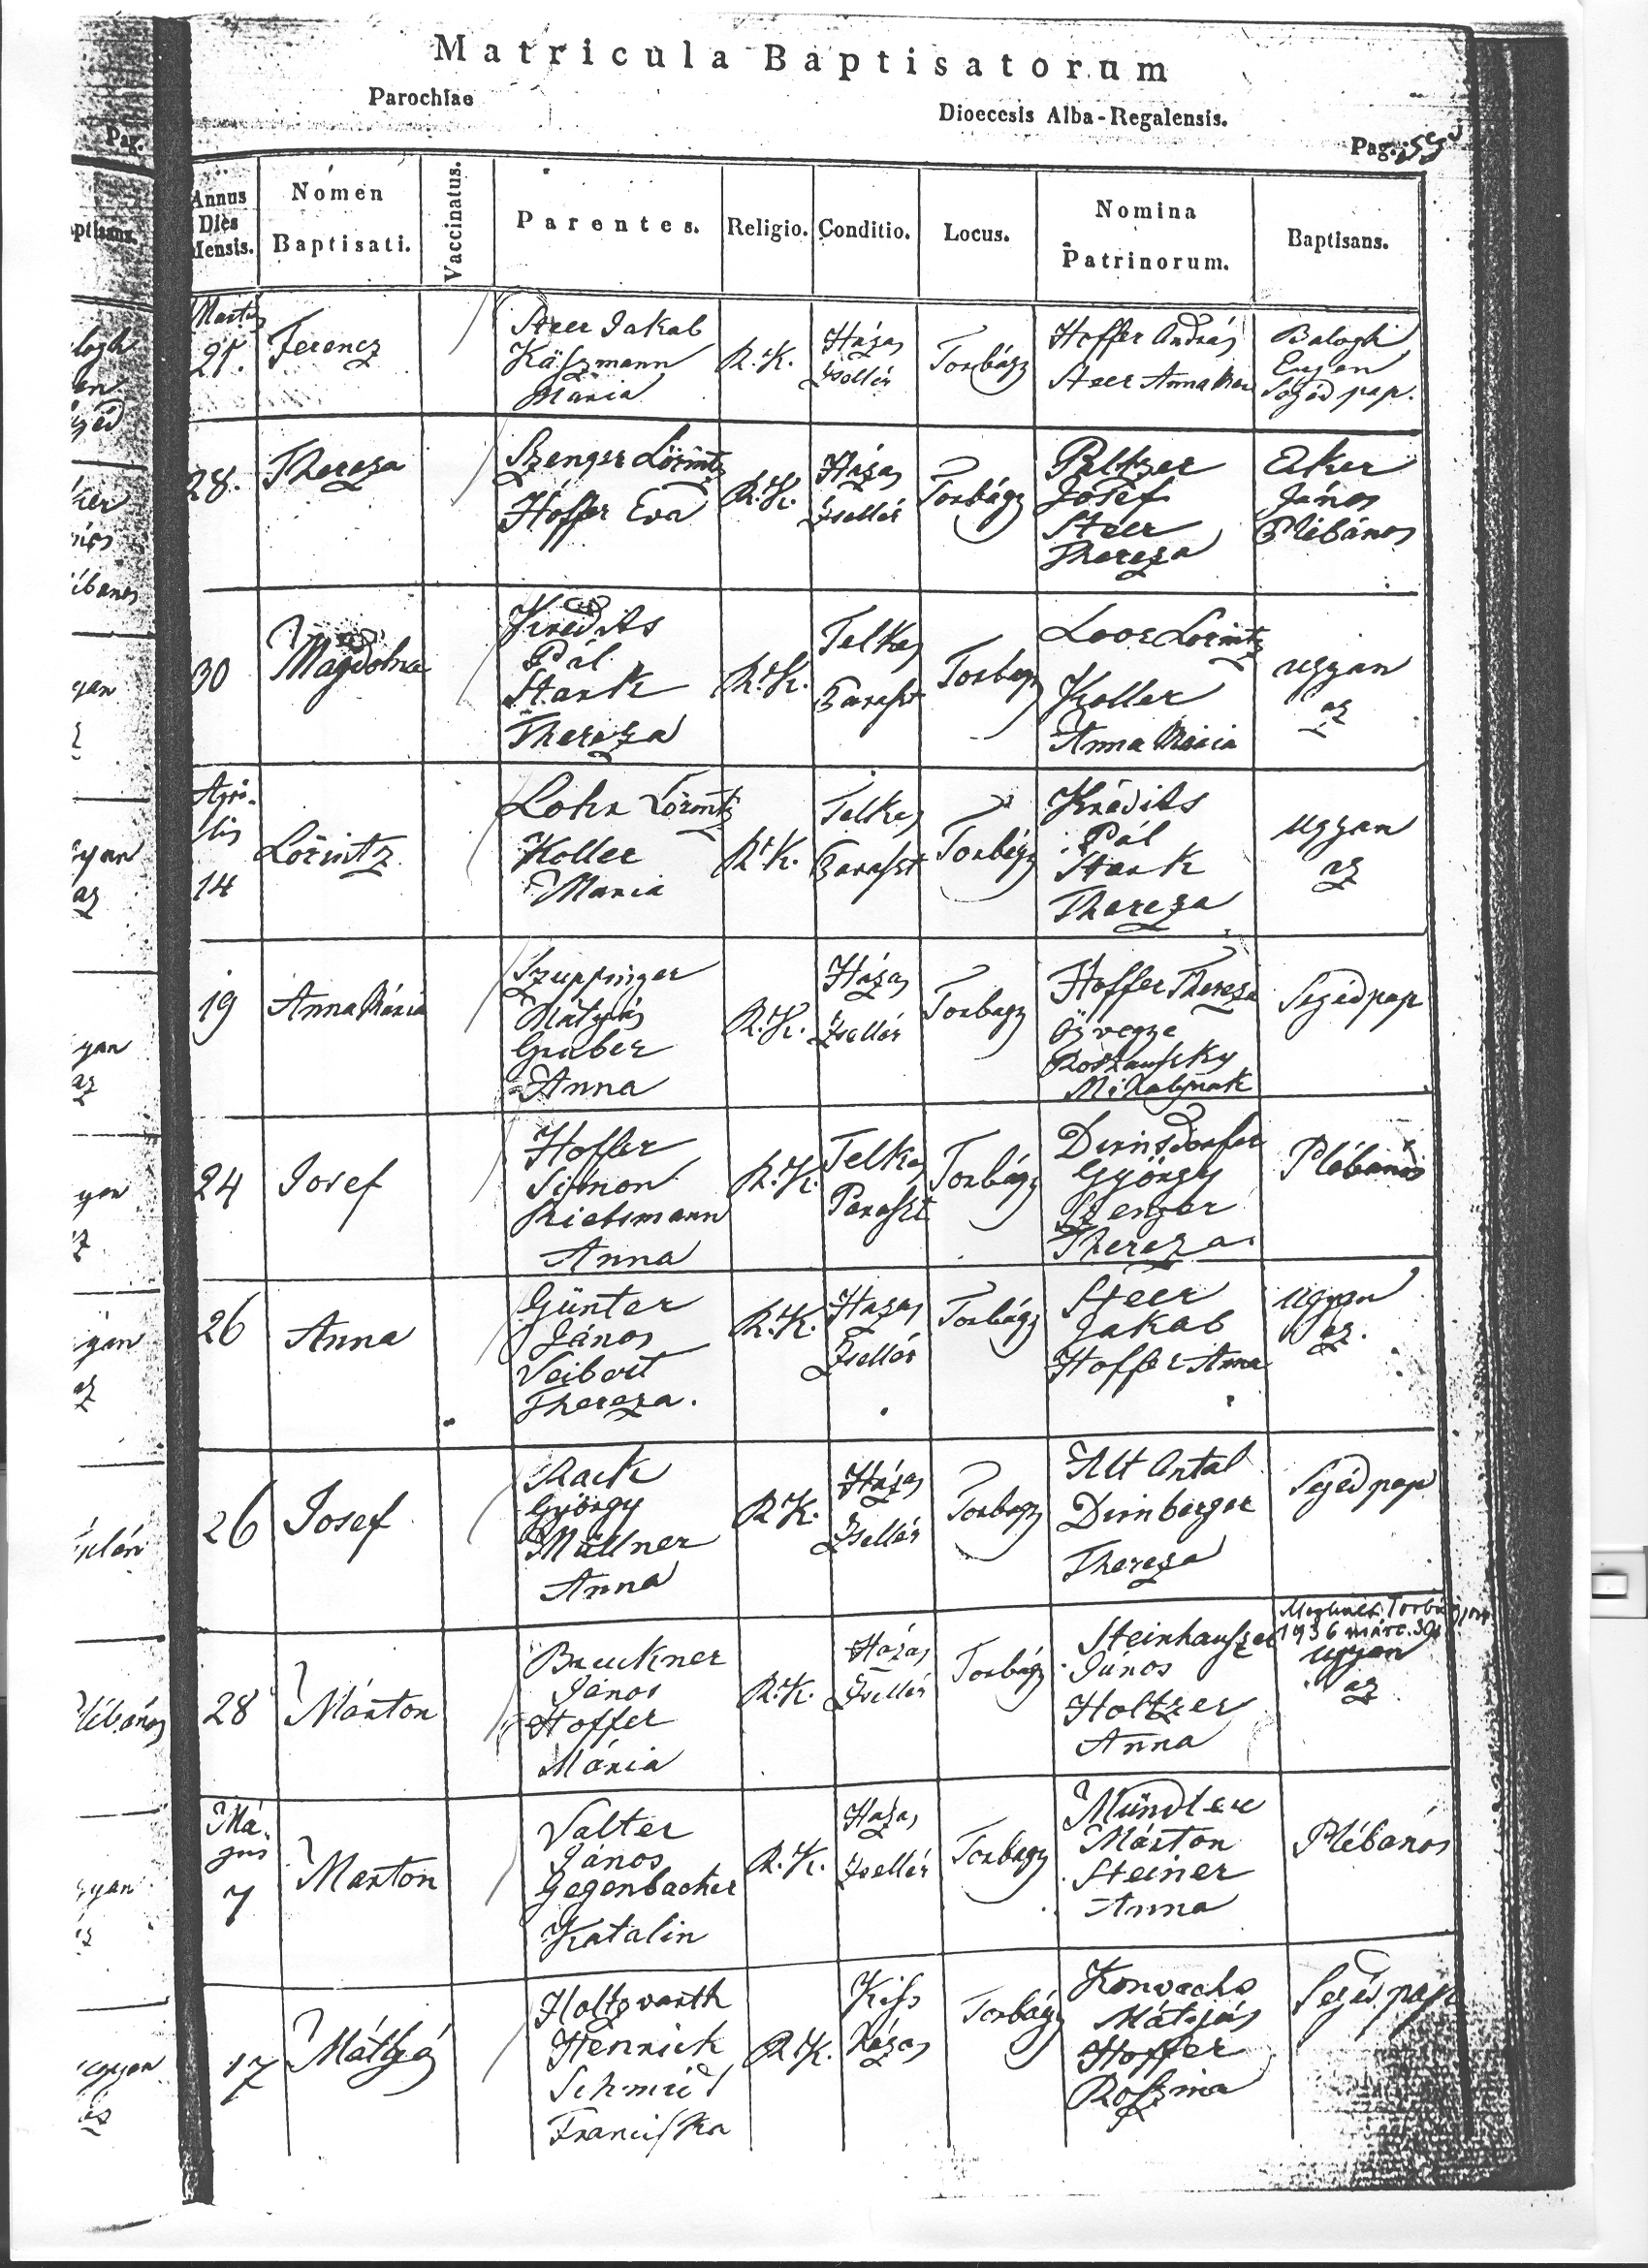 Matricula Baptisatorum
Parochiae
Dioecesis Alba-Regalensis.
Pag.
Pag.
Annus
Dies
Mensis.
Nomen
Baptisati.
Vaccinatus.
Parentes.
Religio.
Conditio.
Locus.
Nomina
Patrinorum.
Baptisans.
21.
Ferencz
Steer Jakab
Käszmann
Mária
R. K.
Házas
Zsellér
Torbágy
Hoffer András
Steer Anna Mar
Balogh
Eugen
Segéd pap.
28.
Thereza
Szenger Lörintz
Hoffer Eva
R. K.
Házas
Zsellér
Torbágy
Peltzer
Josef
Steer
Thereza
Eker
János
Plébános
30
Magdolna
Krédits
Pál
Stark
Thereza
R. K.
Telkes
Paraszt
Torbágy
Loor Lorintz
Koller
Anna Maria
ugyan
az
Apri-
lis
14
Lörintz
Lohr Lörintz
Koller
Maria
R. K.
Telkes
Paraszt
Torbágy
Krédits
Pál
Stark
Thereza
ugyan
az
19
Anna Mária
Szuppinger
Mátyás
Gruber
Anna
R. K.
Házas
Zsellér
Torbagy
Hoffer Thereza
özvegye
Mihalynak
Segéd pap
24
Josef
Hoffer
Simon
Rietsmann
Anna
R. K.
Telkes
Paraszt
Torbágy
Dirnsdorfer
György
Szenger
Thereza.
Plébános
26
Anna
Günter
János
Veibert
Thereza.
R. K.
Hazas
Zsellér
Torbágy
Steer
Jakab
Hoffer Anna
ugyan
az.
26
Josef
Rack
György
Müllner
Anna
R. K.
Házas
Zsellér
Torbagy
Alt Antal
Dirnberger
Thereza
Segéd pap
28
Márton
Bruckner
János
Hoffer
Mária
R. K.
Házas
Zsellér
Torbágy
Steinhauszer
János
Holtzer
Anna
1936 márc. 30.
ugyan
az
Má-
jus
7
Marton
Valter
János
Gegenbacher
Katalin
R. K.
Hazas
Zsellér
Torbagy
Mündler
Márton
Steiner
Anna
Plébános
17
Mátyás
Holtzvarth
Henrick
Schmid
Franciska
R. K.
Kiss
házas
Torbágy
Mátyás
Hoffer
Roszina
Segéd pap